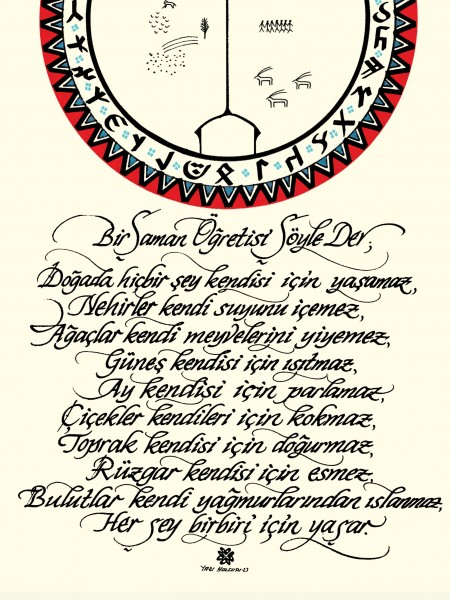 Bir Şaman Öğretisi Şöyle Der;
Doğada hiçbir şey kendisi için yaşamaz,
Nehirler kendi suyunu içemez,
Ağaçlar kendi meyvelerini yiyemez,
Güneş kendisi için ısıtmaz,
Ay kendisi için parlamaz,
Çiçekler kendileri için kokmaz,
Toprak kendisi için doğurmaz,
Rüzgar kendisi için esmez,
Bulutlar kendi yağmurlarından ıslanmaz,
Her şey birbiri için yaşar.